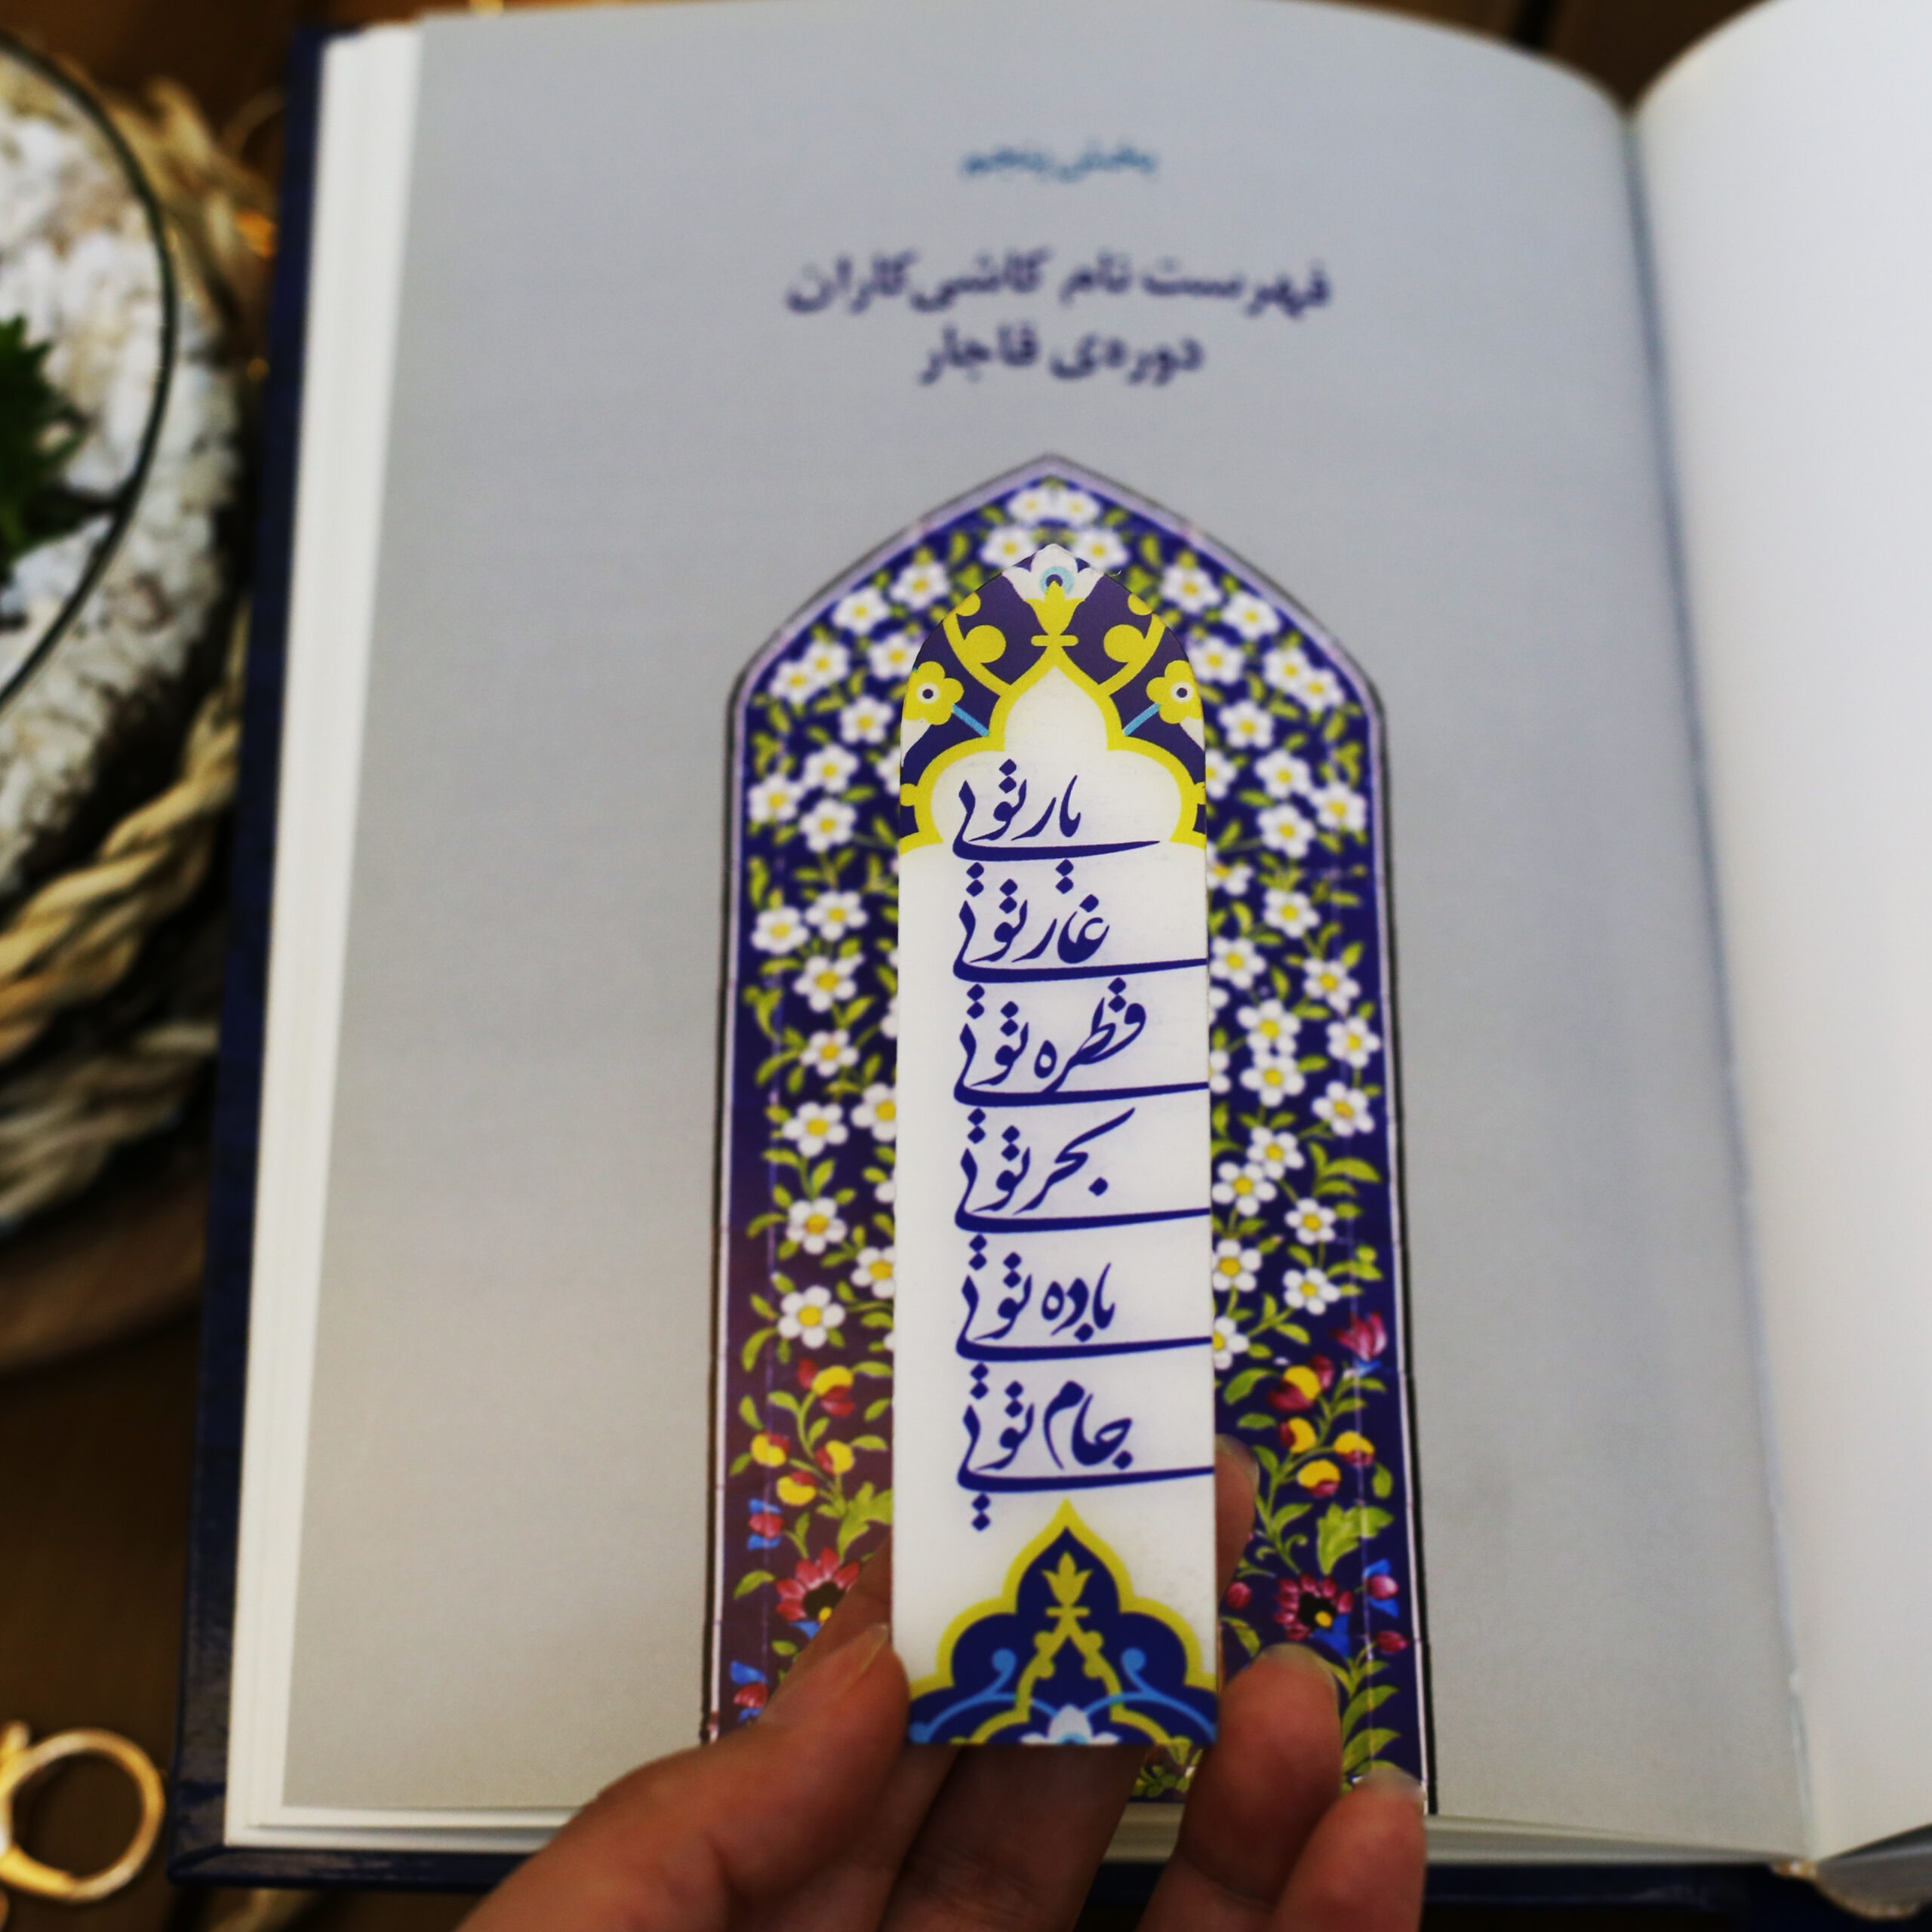 بخش پنجم
فهرست نام کاشی‌کاران
دوره‌ی قاجار
یار تویی
غار تویی
قطره تویی
بحر تویی
باده تویی
جام تویی